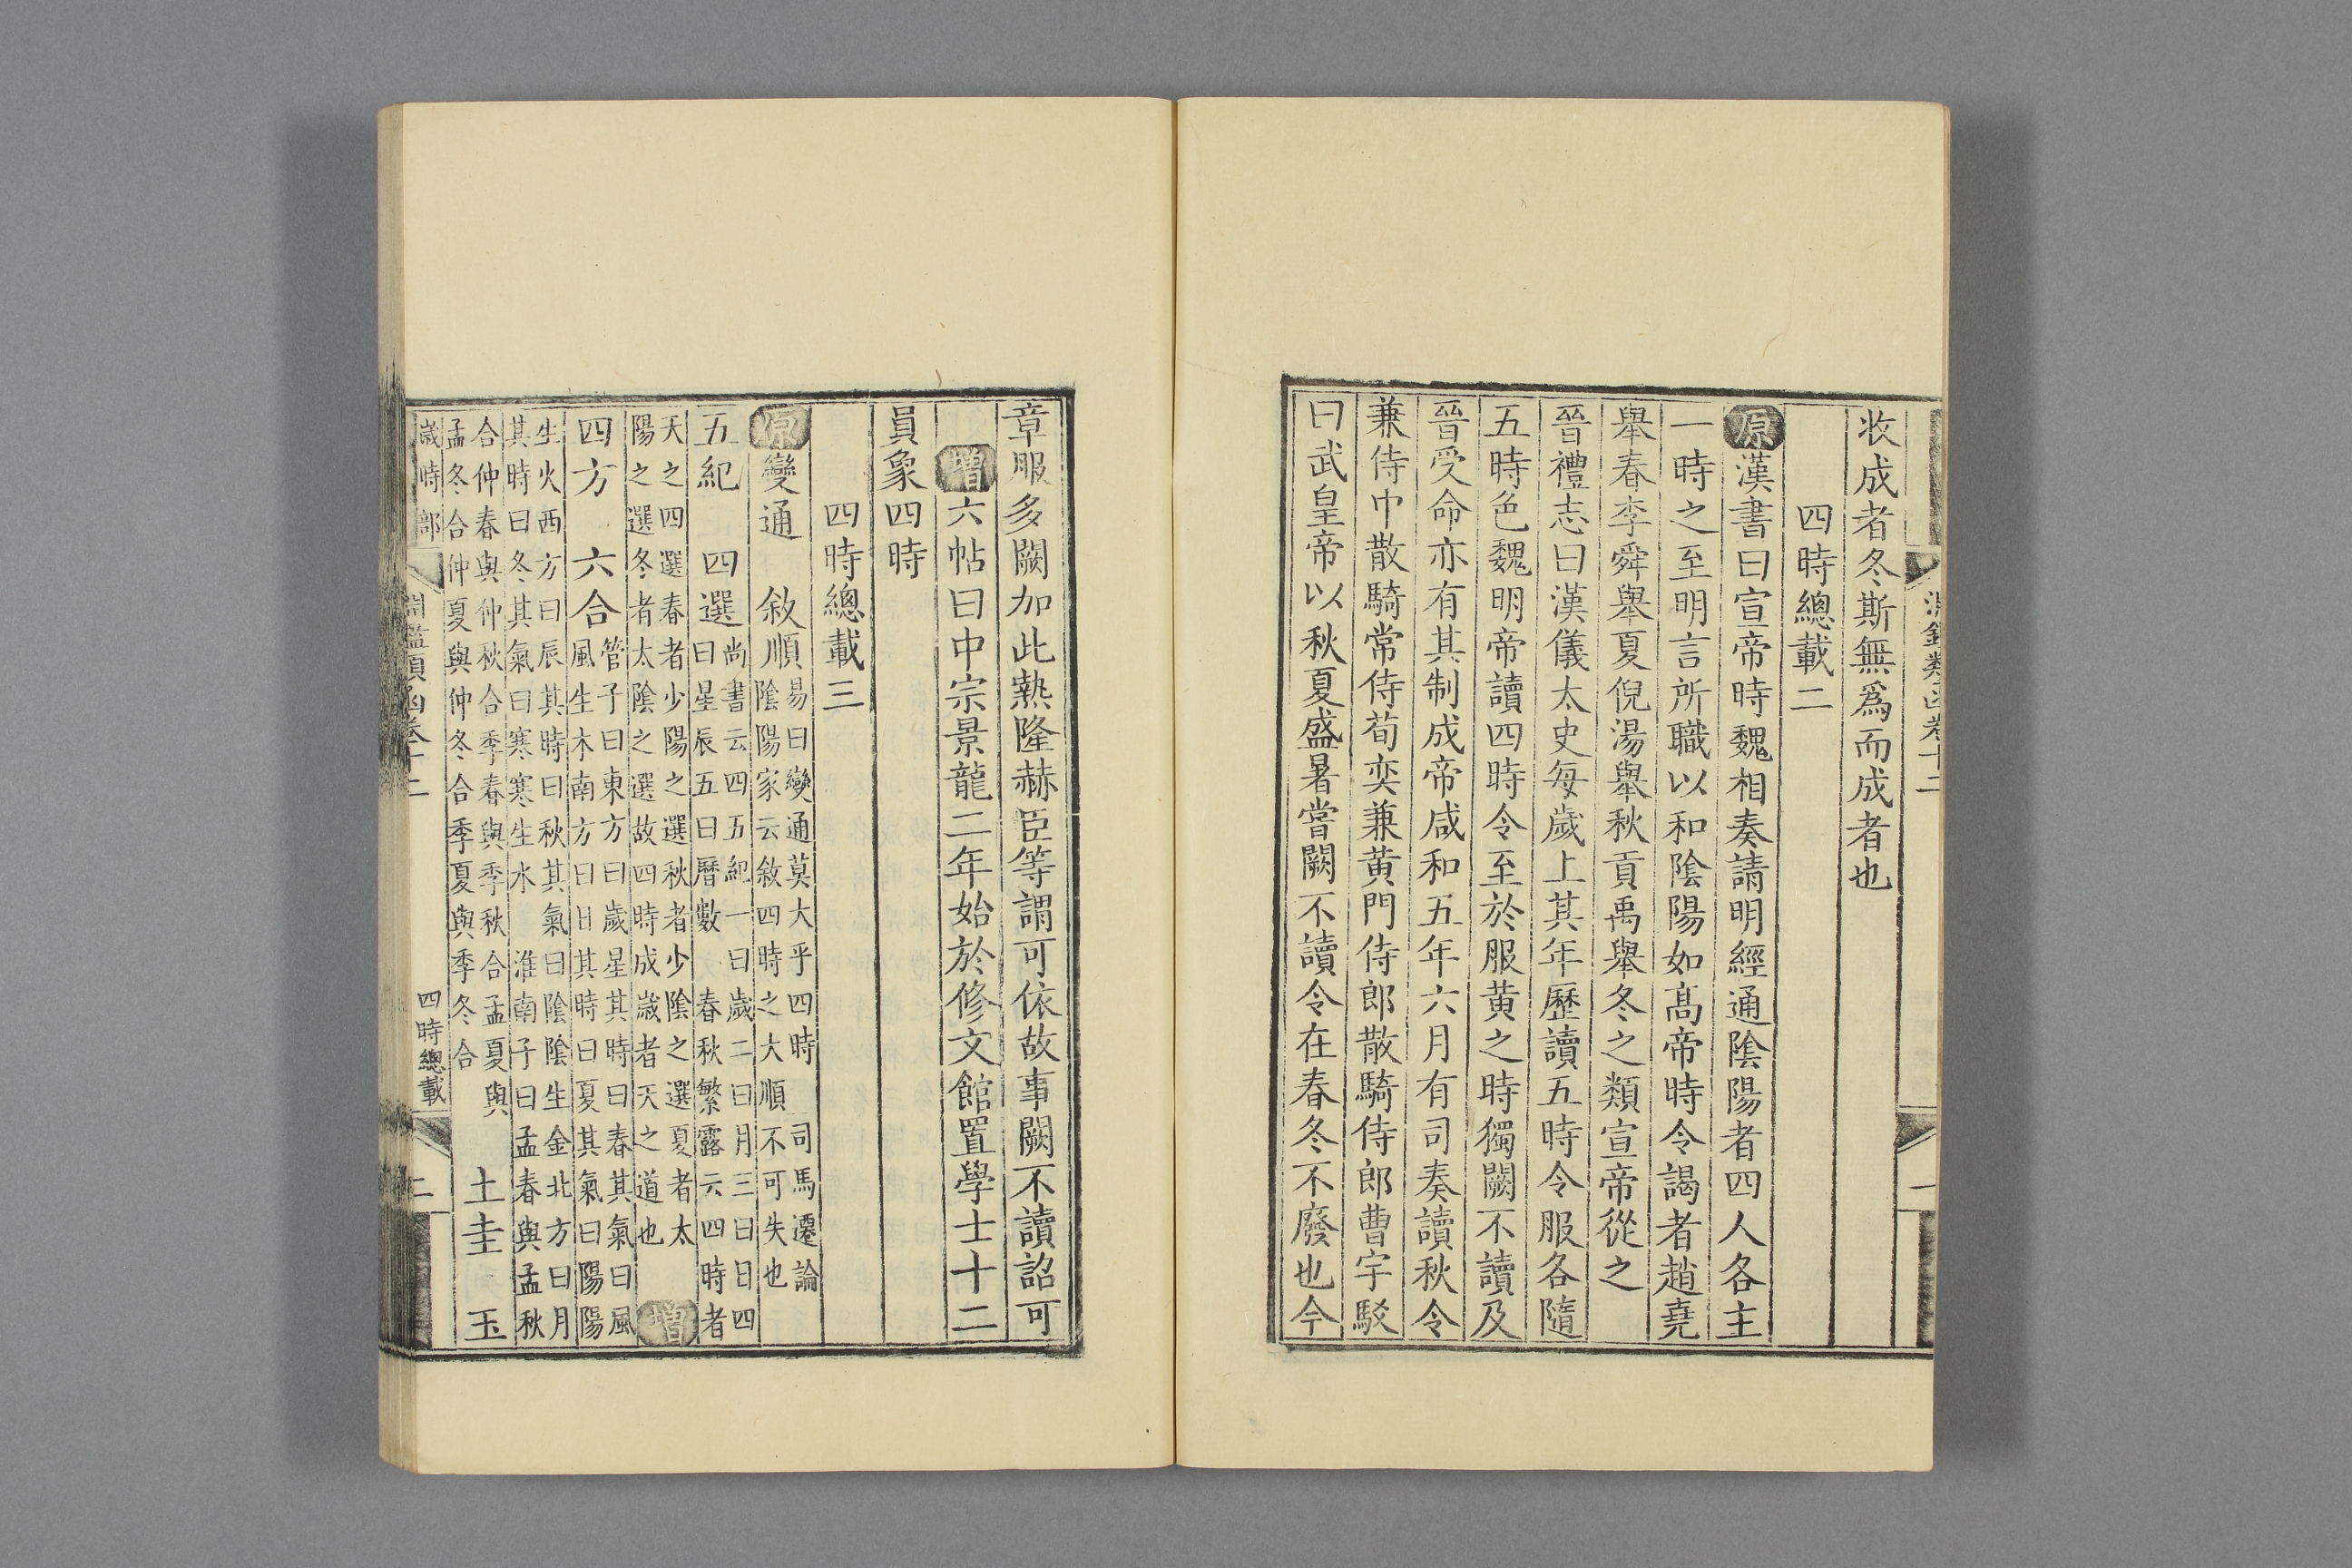 淵鑑類函卷十二
收成者冬斯無爲而成者也
四時總載二
原漢書曰宣帝時魏相奏請明經通陰陽者四人各主
一時之至明言所職以和陰陽如高帝時令謁者趙堯
舉春李舜舉夏倪湯舉秋貢禹舉冬之類宣帝從之
晉禮志曰漢儀太史每歲上其年歷讀五時令服各隨
五時色魏明帝讀四時令至於服黄之時獨闕不讀及
晉受命亦有其制成帝咸和五年六月有司奏讀秋令
兼侍中散騎常侍荀奕兼黄門侍郎散騎侍郎曹宇駁
曰武皇帝以秋夏盛暑當闕不讀令在春冬不廢也今
章服多闕加此熱隆赫臣等謂可依故事闕不讀詔可
增六帖曰中宗景龍二年始於修文館置學士十二
員象四時
四時總載三
原變通 敘順
易曰變通莫大乎四時 司馬遷論
陰陽家云敘四時之大順不可失也
五紀 四選
尚書云四五紀一曰歲二曰月三曰日四
曰星辰五曰曆數 春秋繁露云四時者
天之四選春者少陽之選秋者少陰之選夏者太
陽之選冬者太陰之選故四時成歲者天之道也
增
四方 六合
管子曰東方曰歲星其時曰春其氣曰風
風生木南方曰日其時曰夏其氣曰陽陽
生火西方曰辰其時曰秋其氣曰陰陰生金北方曰月
其時曰冬其氣曰寒寒生水 淮南子曰孟春與孟秋
合仲春與仲秋合季春與季秋合孟夏與
孟冬合仲夏與仲冬合季夏與季冬合
土圭 玉
歲時部 淵鑑類函卷十二 四時總載 二